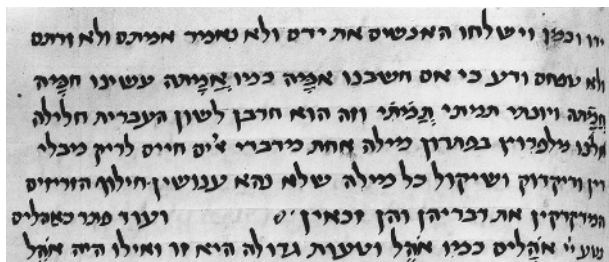 ידו וכמו וישלחו האנשים את ידם ולא נאמר אמיתם ולא זרתם
ולא טפחם ודע כי אם חשבנו אמה כמו אמתה עשינו חמה
חמתה ויונתי תמתי תמתי וזה הוא חרבן לשון העברית חלילה
לנו מלפרוץ בפתרון מילה אחת מדברי חיים לריק מבלי
דין ודיקדוק ושיקול כל מילה שלא נהא ענושין חילוף הזריזים
המדקדקין את דבריהן והן זכאין ועוד פתר כאהלים
נטע יי אהלים כמו אהל וטעות גדולה היא זו ואילו היה אהל